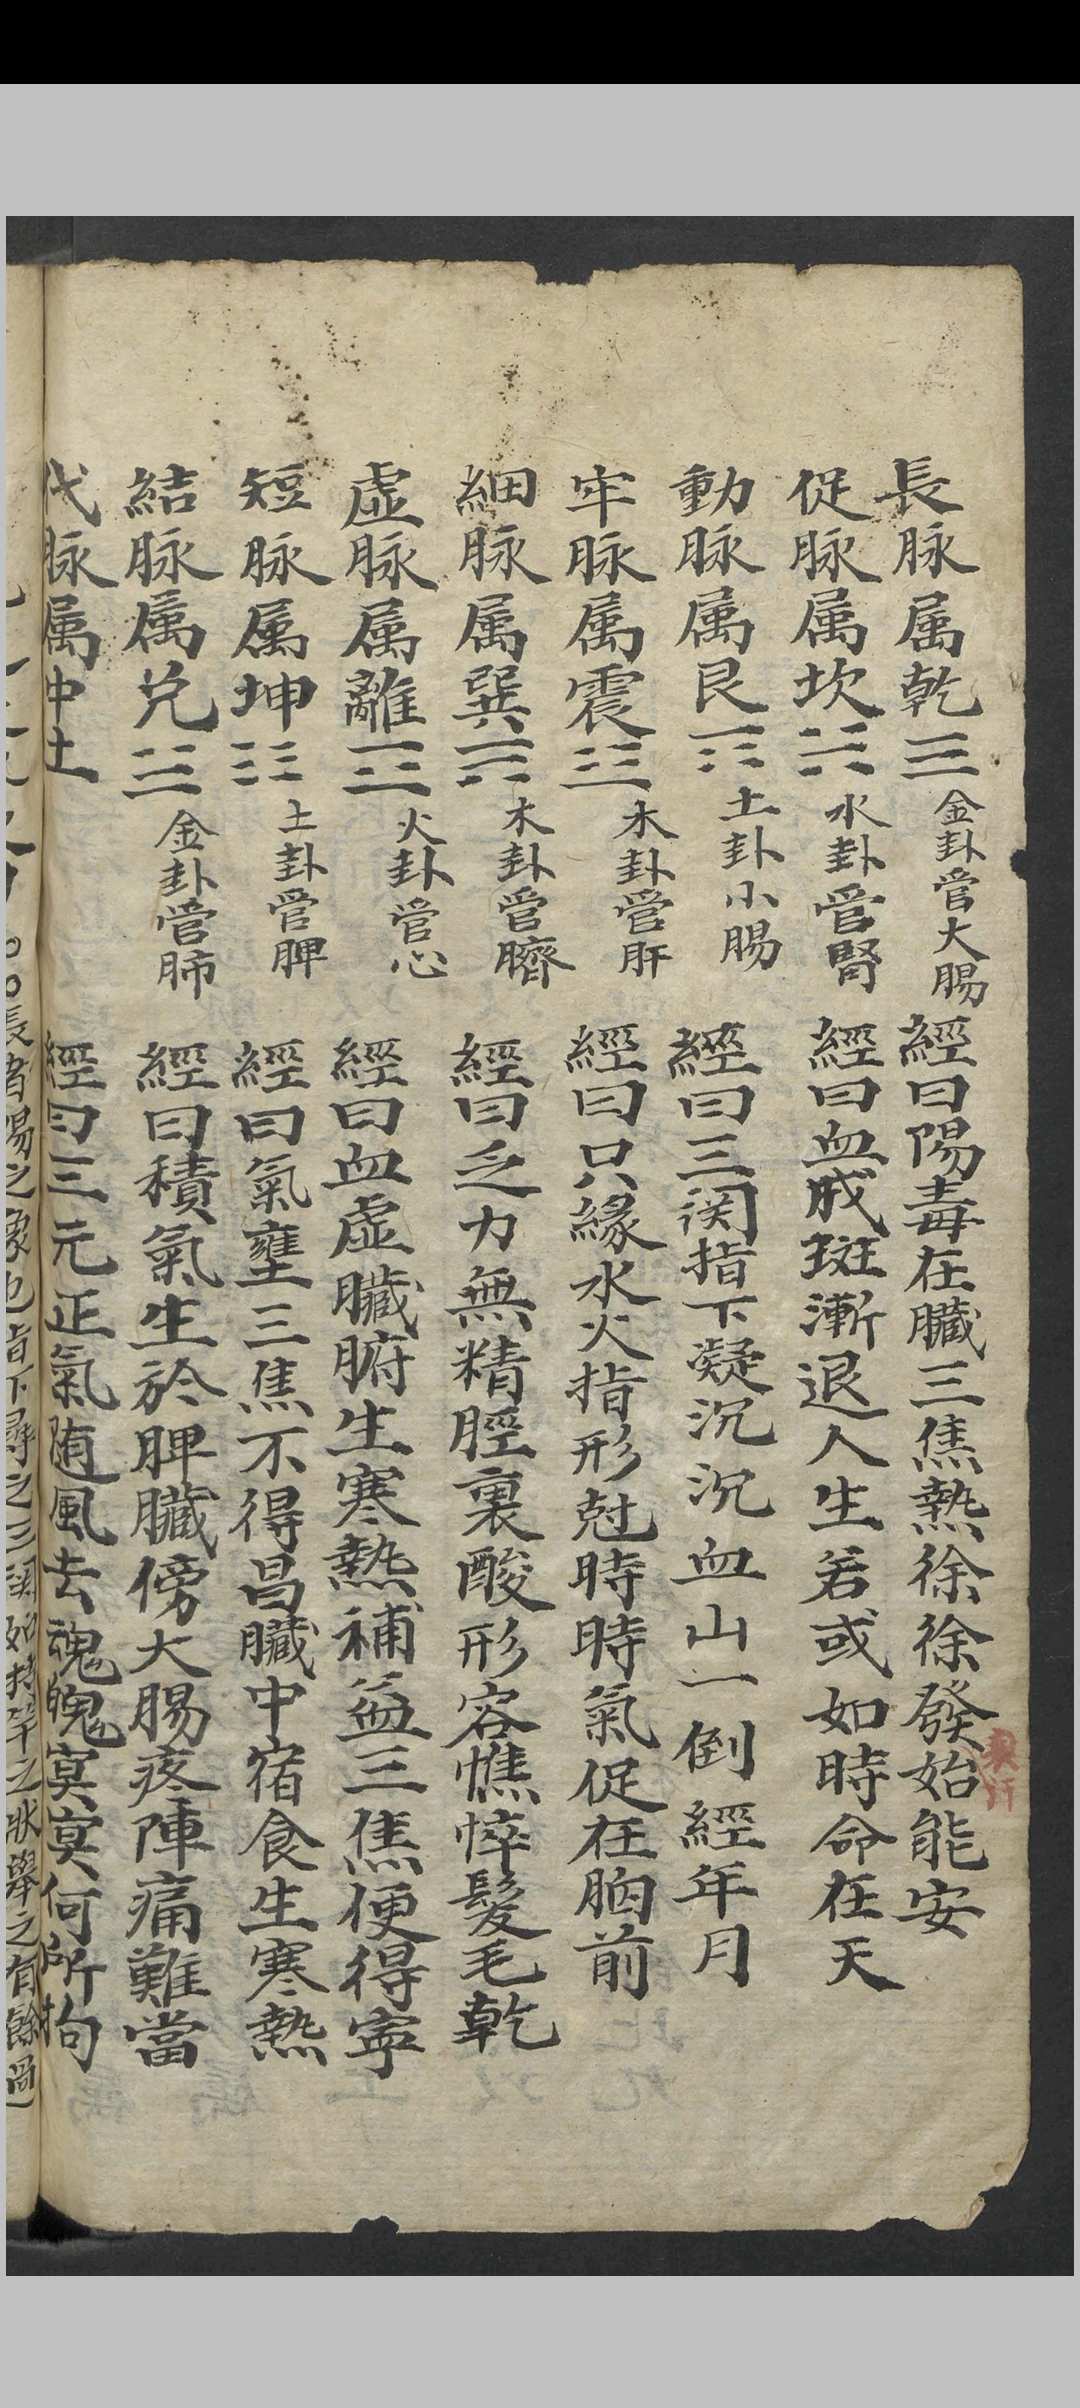 長脉属乾☰金卦管大腸 經曰陽毒在臟三焦熱徐徐發始能安
促脉属坎☵水卦管腎 經曰血成斑漸退人生若或如時命在天
動脉属艮☶土卦小腸 經曰三関指下凝沉沉血山一倒經年月
牢脉属震☳木卦管肝 經曰只緣水火指形尅時時氣促在胸前
細脉属巽☴木卦管臍 經曰乏力無精脛裏酸形容憔悴髮毛乾
虛脉属離☲火卦管心 經曰血虛臟腑生寒熱補益三焦便得寧
短脉属坤☷土卦管脾 經曰氣壅三焦不得昌臟中宿食生寒熱
結脉属兌☱金卦管肺 經曰積氣生於脾臟傍大腸疼陣痛難當
代脉属中土 經曰三元正氣随風去魂魄冥冥何所拘
長者陽之象也指下尋之三関如持竿之狀舉之有餘過